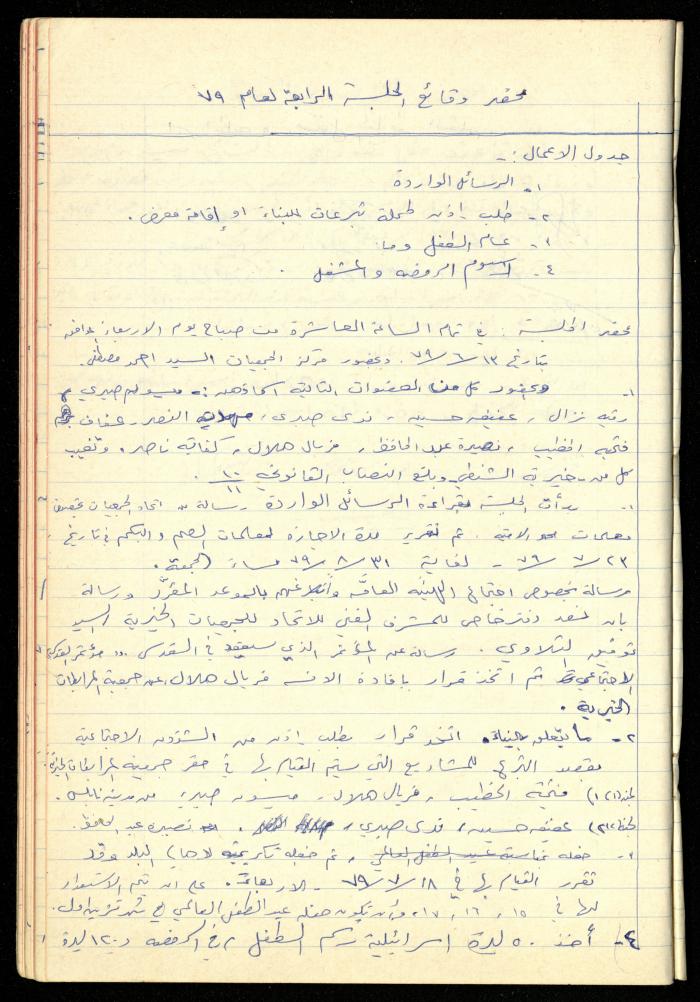 محضر وقائع الجلسة الرابعة لعام ٧٩
جدول الاعمال :-
١- الرسائل الواردة
٢- طلب اذن لحملة تبرعات للبناء او إقامة معرض .
٣- عام الطفل وما
٤- الاسوم الروضه والمشغل .
محضر الجلسة : في تمام الساعة العاشرة من صباح يوم الاربعاء الموافق
بتاريخ ١٣/٦/٧٩. وبحضور مركز الجمعيات السيد احمد مصطفى.
١- وبحضور كل من العضوات التالية اسماؤهن :- ميسون صبري
رقيه نزال ، عفيفه حسيبه ، ندى صبري، النصر، عفاف
فتحيه الخطيب ، نصيرة عبد الحافظ ، فريال هلال ، كفاية ناصر. وتغيب
كل من خيرية الشنطي وبلغ النصاب القانوني ١٠/١١
١- بدأت الجلسة بقراءة الرسائل الواردة رسالة من اتحاد الجمعيات بخصوص
معلمات الاميه . تم تقرير مدة الاجازه لمعلمات الصم والبكم في تاريخ
٢٣/٧/٧٩ - لغاية ٣١/٨/٧٩ مساء الجمعة .
رسالة بخصوص اجتماع الهيئه العامة وأبلاغهن بالموعد المقرر ورسالة
بان نعد دفتر خاص للمشرف الفني للاتحاد للجمعيات الخيرية السيد
توفيق التلاوي . رسالة عن المؤتمر الذي سيعقد في القدس مؤتمر
الاجتماعي تم اتخذ قرار بافادة الانسه فريال هلال عن جمعية المرابطات
الخيرية .
٢- ما يتعلق بالبناء. اتخذ قرار بطلب اذن من الشؤون الاجتماعية
بقصد التبرع للمشاريع التي سيتم القيام بها في مقر جمعية المرابطات الخيرية.
لجنة (١) فتحية الخطيب ، فريال هلال ، ميسون صبري من مدينة نابلس.
لجنة (٢) عفيفه حسيبه ، ندى صبري ، نصيره عبد الحافظ.
٣- حفله بمناسبة عيد الطفل العالمي ، تم حفله تكريميه البلد وقد
تقرر القيام بها في ١٨/٧/٧٩ الاربعاء. على ان يتم الاستمرار
لها في ١٥ ، ١٦ ، ١٧، وأن تكون حفلة عيد الطفل العالمي في شهر تشرين اول.
٤- أخذ ٥٠ ليرة اسرائيلية رسم الطفل في الروضه و ١٢٠ ليرة